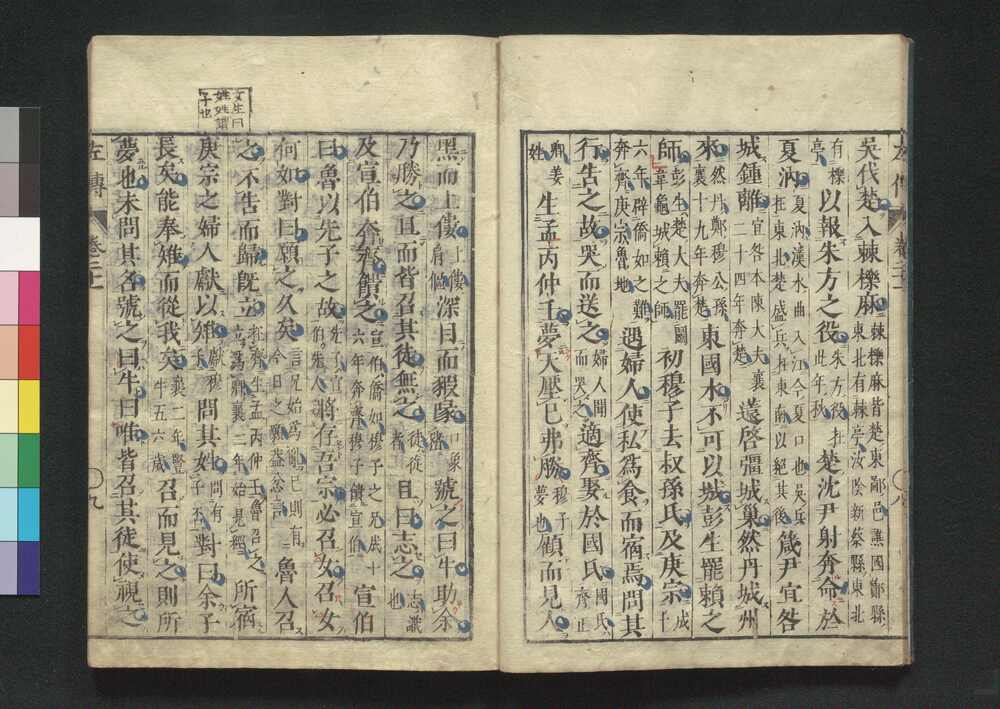 吳伐楚入棘櫟麻棘櫟麻皆楚東鄙邑譙國酇縣東北有棘亭汝陰新蔡縣東北
有櫟亭以報朱方之役朱方役在此年秋楚沈尹射奔命於
夏汭夏汭漢水曲入江今夏口也吳兵在東北楚盛兵在東南以絕其後箴尹宜咎
城鍾離宜咎本陳大夫襄二十四年奔楚薳啓彊城巢然丹城州
來然丹鄭穆公孫襄十九年奔楚東國水不可以城彭生罷賴之
師彭生楚大夫罷鬭韋龜城賴之師初穆子去叔孫氏及庚宗成十
六年辟僑如之難奔齊庚宗魯地遇婦人使私爲食而宿焉問其
行告之故哭而送之婦人聞而哭之適齊娶於國氏國氏齊正
卿姜姓生孟丙仲壬夢天壓己弗勝穆子夢也顧而見人
左傳 卷二十一 八
文生曰姓姓謂子也
黑而上僂上僂肩傴深目而豭喙口象豬號之曰牛助余
乃勝之旦而皆召其徒無之徒從者且曰志之志識也
及宣伯奔齊饋之宣伯僑如穆子之兄成十六年奔齊穆子饋宣伯宣伯
曰魯以先子之故先子宣伯先人將存吾宗必召女召女
何如對曰願之久矣言兄始爲亂已則有今日之願蓋忿言魯人召
之不告而歸旣立立爲卿襄二年始見經在齊生孟丙仲壬魯召之所宿
庚宗之婦人獻以雉獻穆子問其姓問有子否對曰余子
長矣能奉雉而從我矣襄二年豎牛五六歲召而見之則所
夢也未問其名號之曰牛曰唯皆召其徒使視之
左傳 卷二十一 九